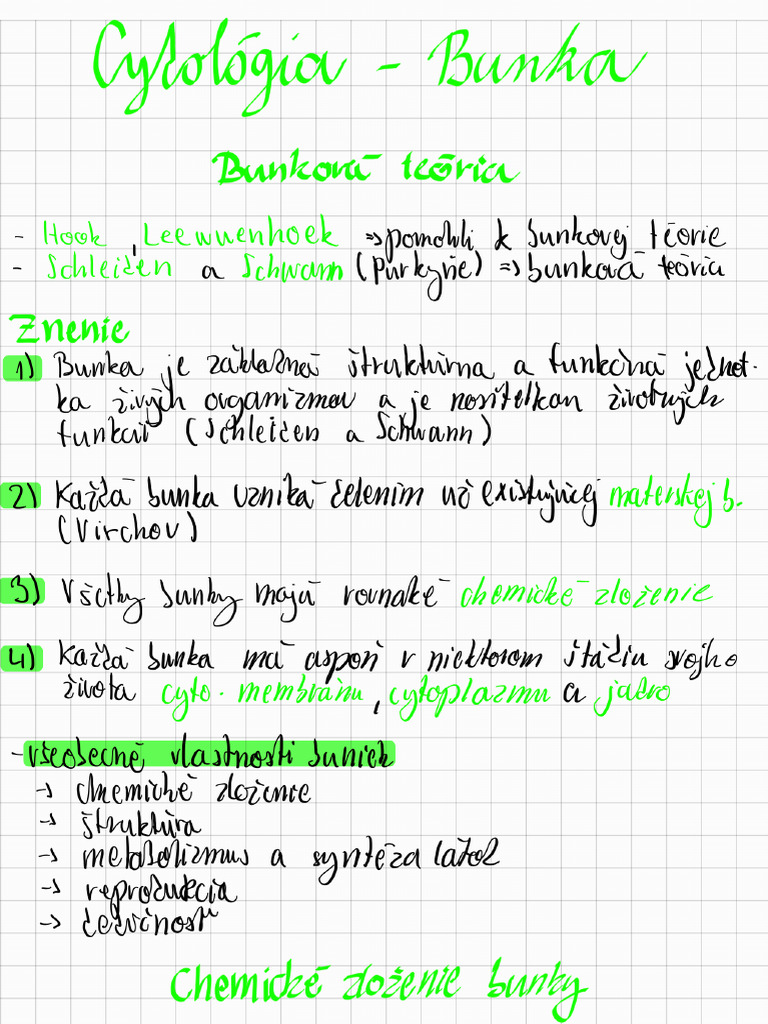 Cytológia - Bunka
Bunková teória
- Hook, Leewuenhoek => pomohli k bunkovej teórie
- Schleiden a Schwann (Purkyňe) => bunková teória
Znenie
1) Bunka je základná štruktúrna a funkčná jednot-
ka živých organizmov a je nositeľkou životných
funkcií (Schleiden a Schwann)
2) Každá bunka vzniká delením už existujúcej materskej b.
(Virchov)
3) Všetky bunky majú rovnaké chemické zloženie
4) Každá bunka má aspoň v niektorom štádiu svojho
života cyto. membránu, cytoplazmu a jadro
- všeobecné vlastnosti buniek
-> chemické zloženie
-> štruktúra
-> metabolizmus a syntéza látok
-> reprodukcia
-> dedičnosť
Chemické zloženie bunky